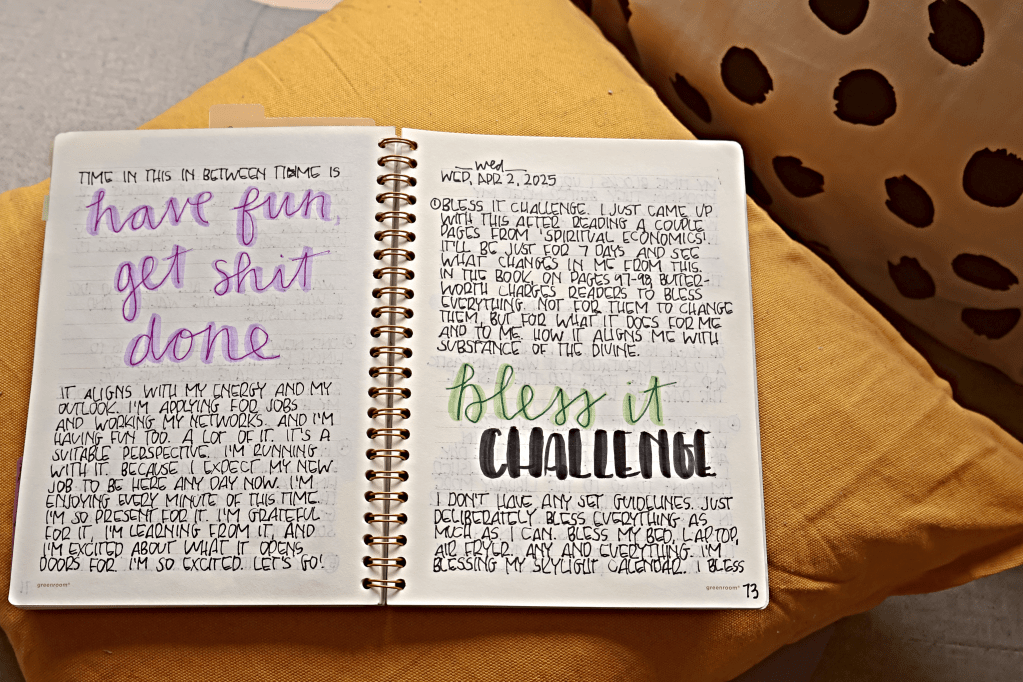 TIME IN THIS IN BETWEEN TIME IS
have fun,
get shit
done
IT ALIGNS WITH MY ENERGY AND MY
OUTLOOK. I'M APPLYING FOR JOBS
AND WORKING MY NETWORKS. AND I'M
HAVING FUN TOO. A LOT OF IT. IT'S A
SUITABLE PERSPECTIVE. I'M RUNNING
WITH IT. BECAUSE I EXPECT MY NEW
JOB TO BE HERE ANY DAY NOW. I'M
ENJOYING EVERY MINUTE OF THIS TIME.
I'M SO PRESENT FOR IT. I'M GRATEFUL
FOR IT, I'M LEARNING FROM IT, AND
I'M EXCITED ABOUT WHAT IT OPENS
DOORS FOR. I'M SO EXCITED. LET'S GO!
greenroom
wed
WED, APR 2, 2025
① BLESS IT CHALLENGE. I JUST CAME UP
WITH THIS AFTER READING A COUPLE
PAGES FROM 'SPIRITUAL ECONOMICS'.
IT'LL BE JUST FOR 7 DAYS AND SEE
WHAT CHANGES IN ME FROM THIS.
IN THE BOOK, ON PAGES 97-98, BUTTER-
WORTH CHARGES READERS TO BLESS
EVERYTHING. NOT FOR THEM TO CHANGE
THEM, BUT FOR WHAT IT DOES FOR ME
AND TO ME. HOW IT ALIGNS ME WITH
SUBSTANCE OF THE DIVINE.
bless it
CHALLENGE
I DON'T HAVE ANY SET GUIDELINES. JUST
DELIBERATELY BLESS EVERYTHING AS
MUCH AS I CAN. BLESS MY BED, LAPTOP,
AIR FRYER. ANY AND EVERYTHING. I'M
BLESSING MY SKYLIGHT CALENDAR. I BLESS
greenroom
73